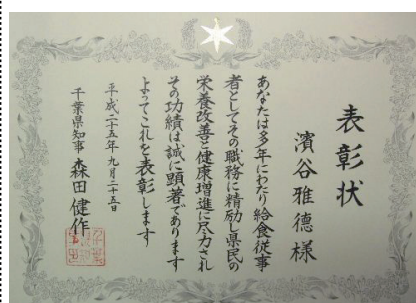 表彰状
濱谷雅徳様
あなたは多年にわたり給食従事
者としてその職務に精励し県民の
栄養改善と健康増進に尽力され
その功績は誠に顕著であります
よってこれを表彰します
平成二十五年九月二十五日
千葉県知事 森田健作